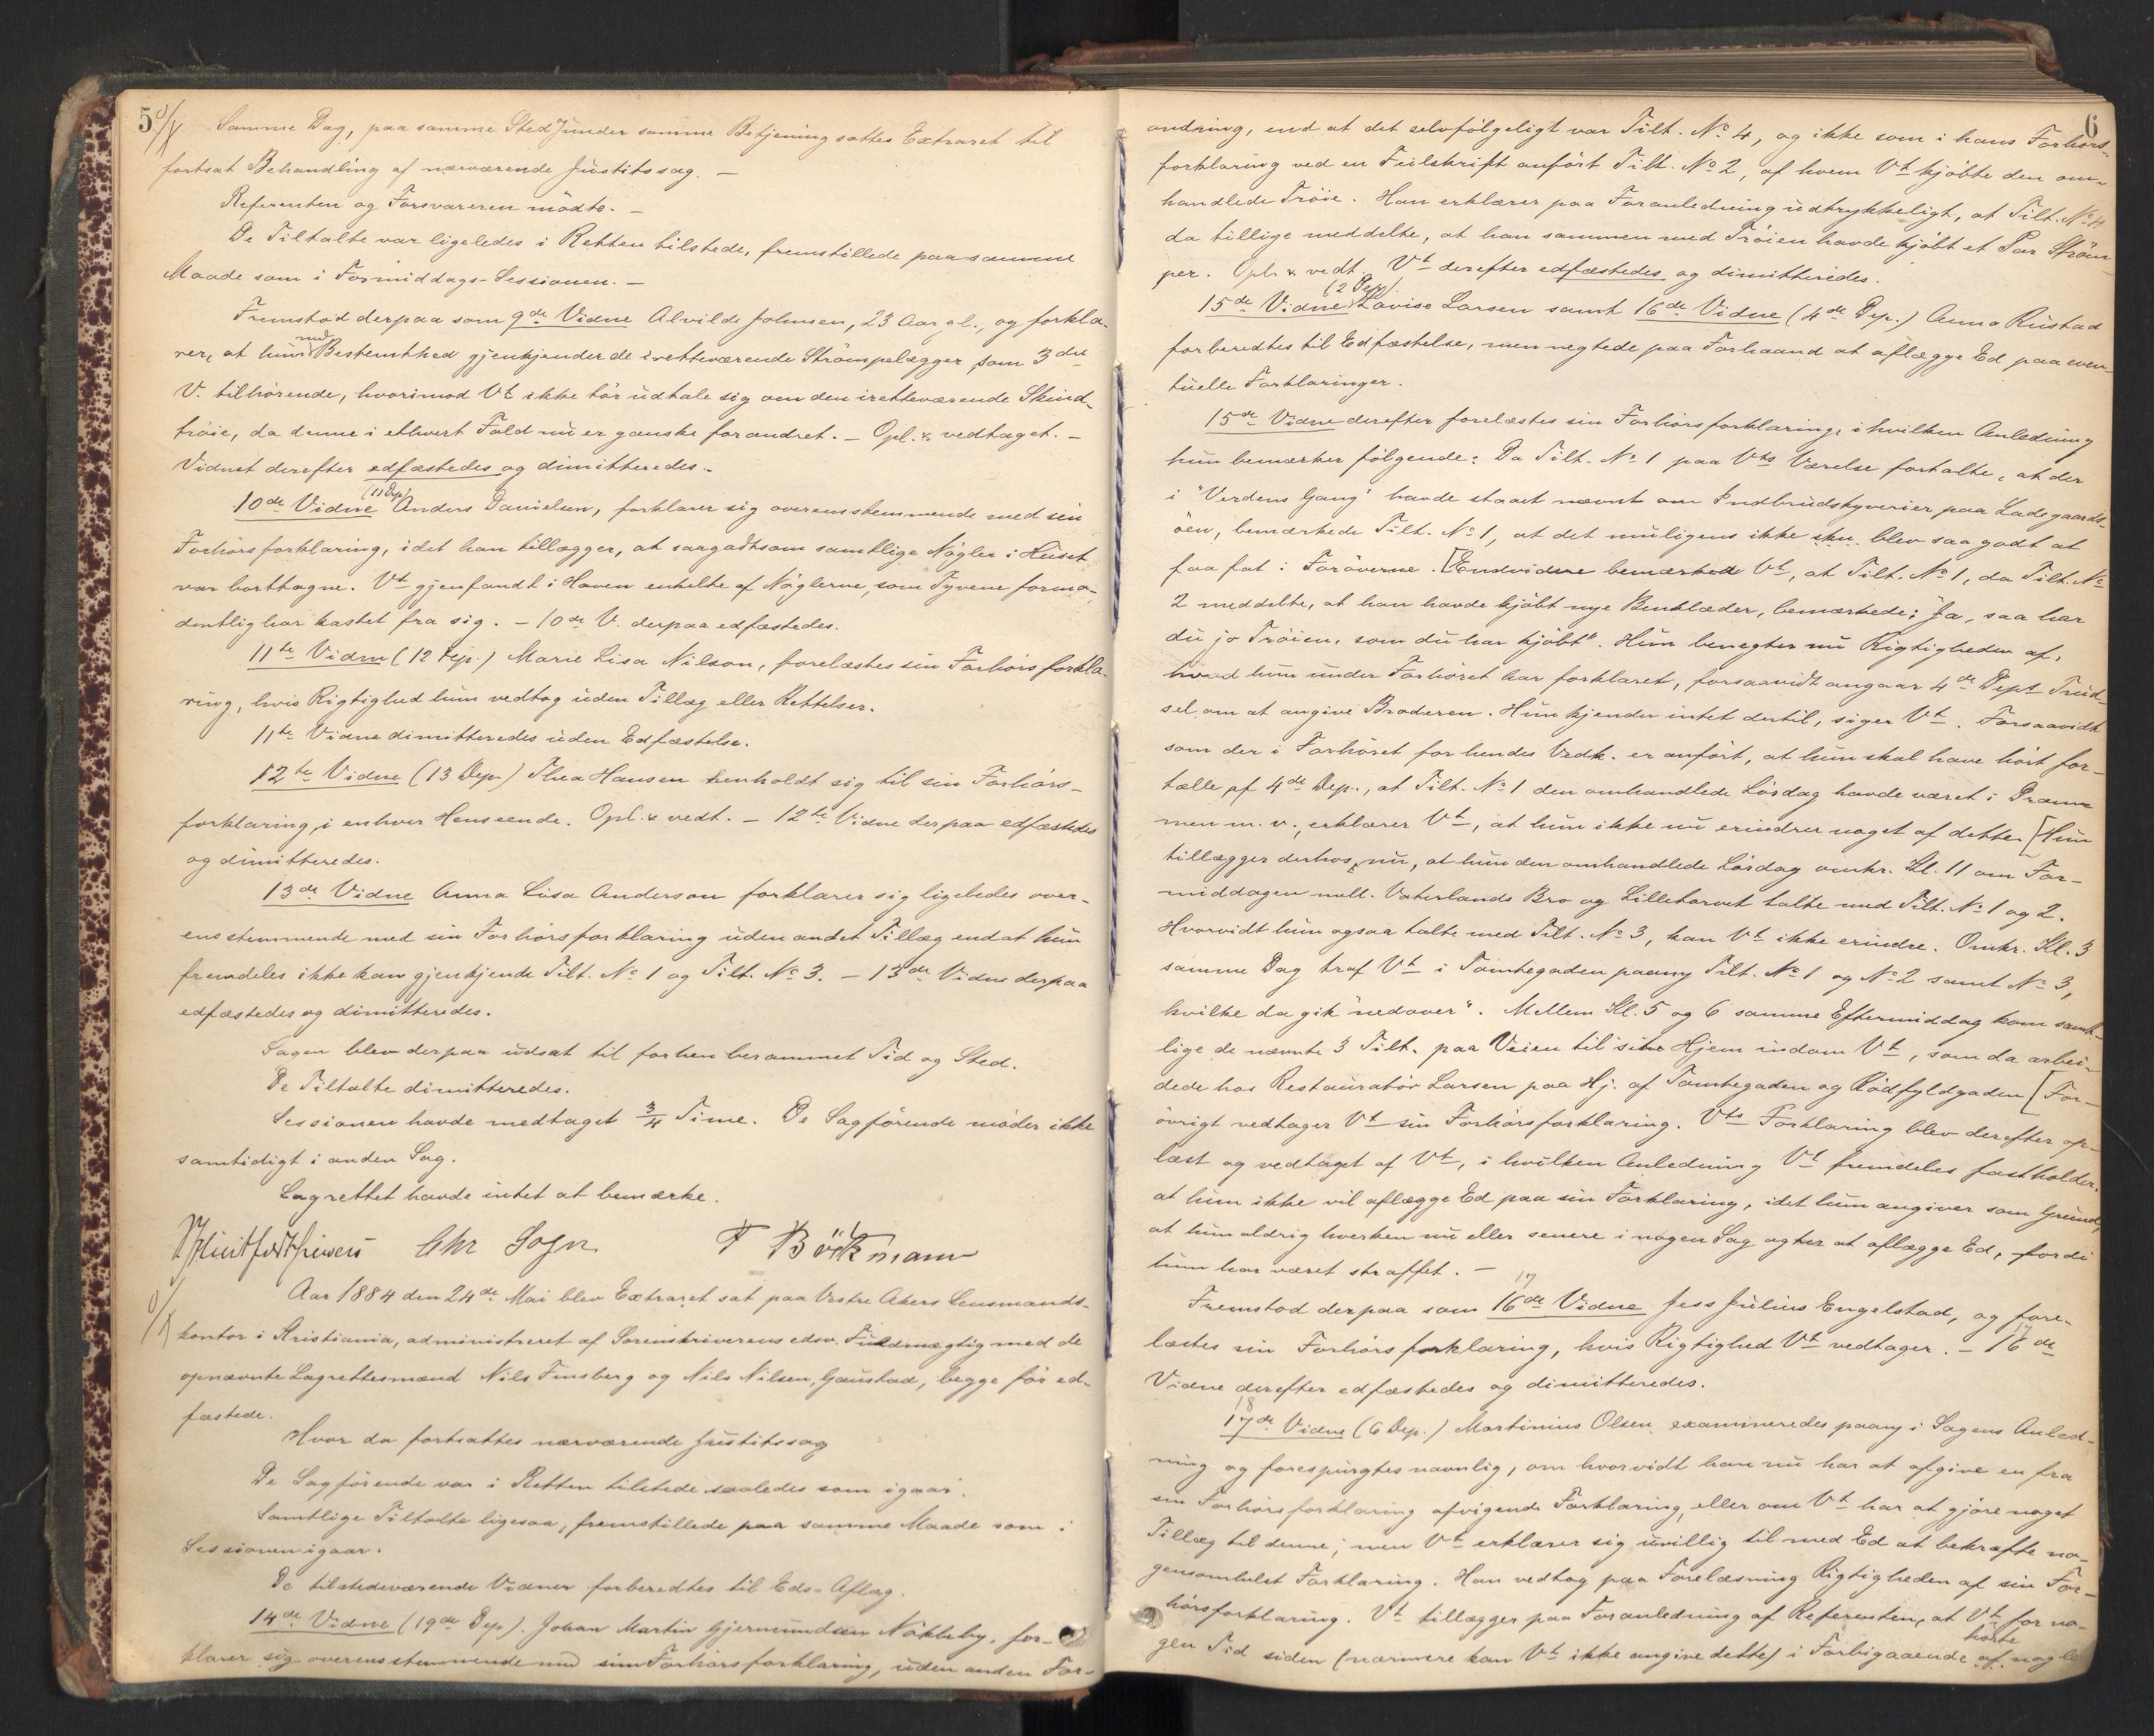 5
Samme Dag, paa samme Sted under samme Betjening sattes Extraret til
fortsat Behandling af nærværende Justitssag. —
Referenten og Forsvareren mödte. —
De Tiltalte var ligeledes i Retten tilstede, fremstillede paa samme
Maade som i Formiddags-Sessionen. —
Fremstod derpaa som 9de Vidne Alvilde Johnsen, 23 Aar gl., og forkla-
rer, at hun med Bestemthed gjenkjender de iretteværende Strömpelægger som 3die
V. tilhörende, hvorimod Vt ikke tör udtale sig om den iretteværende Skind-
tröie, da denne i ethvert Fald nu er ganske forandret. — Opl. & vedtaget. —
Vidnet derefter edfæstedes og dimitteredes. —
10de Vidne (11 Dep) Anders Danielsen, forklarer sig overensstemmende med sin
Forhörsforklaring, idet han tillægger, at saagodtsom samtlige Nögler i Huset
var borttagne. Vt gjenfandt i Haven enkelte af Nöglerne, som Tyvene formo-
dentlig har kastet fra sig. — 10de V. derpaa edfæstedes.
11te Vidne (12 Dep.) Marie Lisa Nilson, forelæstes sin Forhörsforkla-
ring, hvis Rigtighed hun vedtog uden Tillæg eller Rettelser.
11te Vidne dimitteredes uden Edfæstelse.
12te Vidne (13 Dep.) Thea Hansen henholdt sig til sin Forhörs-
forklaring i enhver Henseende. Opl. & vedt. — 12te Vidne derpaa edfæstedes
og dimitteredes.
13de Vidne Anna Lisa Anderson forklarer sig ligeledes over-
ensstemmende med sin Forhörsforklaring uden andet Tillæg end at hun
fremdeles ikke kan gjenkjende Tilt. No 1 og Tilt. No 3. — 13de Vidne derpaa
edfæstedes og dimitteredes.
Sagen blev derpaa udsat til forhen berammet Tid og Sted.
De Tiltalte dimitteredes.
Sessionen havde medtaget 3/4 Time. De Sagförende möder ikke
samtidigt i anden Sag.
Lagrettet havde intet at bemærke.
Chr Sogn F Böckmann
Aar 1884 den 24de Mai blev Extraret sat paa Vestre Akers Lensmands-
kontor i Kristiania, administreret af Sorenskriverens edsv. Fuldmægtig med de
opnævnte Lagrettesmænd Nils Finsberg og Nils Nilsen, Gaustad, begge för ed-
fæstede.
Hvor da fortsattes nærværende Justitssag
De Sagförende var i Retten tilstede saaledes som igaar.
Samtlige Tiltalte ligesaa, fremstillede paa samme Maade som i
Sessionen igaar.
De tilstedeværende Vidner forberedtes til Eds-Aflæg.
14de Vidne (19de Dep). Johan Martin Gjermundsen Nökleby, for-
klarer sig overensstemmende med sin Forhörsforklaring, uden anden For-
6
andring, end at det selvfölgeligt var Tilt. No 4, og ikke som i hans Forhörs-
forklaring ved en Feilskrift anfört Tilt. No 2, af hvem Vt kjöbte den om-
handlede Tröie. Han erklærer paa Foranledning udtrykkeligt, at Tilt. No 4
da tillige meddelte, at han sammen med Tröien havde kjöbt et Par Ström-
per. Opl. & vedt. Vt derefter edfæstedes og dimitteredes.
15de Vidne (2 Dep.) Lovise Larsen samt 16de Vidne (4de Dep.) Anna Rustad
forberedtes til Edfæstelse, men negtede paa Forhaand at aflægge Ed paa even-
tuelle Forklaringer.
15de Vidne derefter forelæstes sin Forhörsforklaring, i hvilken Anledning
hun bemærker fölgende: Da Tilt. No 1 paa Vts Værelse fortalte, at der
i "Verdens Gang" havde staaet nævnt om Indbrudstyverier paa Ladegaards-
öen, bemærkede Tilt. No 1, at det muligens ikke sku blev saa godt at
faa fat i Foröverne. [Endvidere bemærked Vt, at Tilt. No 1, da Tilt. No
2 meddelte, at han havde kjöbt nye Benklæder, bemærkede: "Ja, saa har
du jo Tröien, som du har kjöbt". Hun benegter nu Rigtigheden af,
hvad hun under Forhöret har forklaret, forsaavidt angaar 4de Dept Trud-
sel om at angive Broderen. Hun kjender intet dertil, siger Vt. Forsaavidt
som der i Forhöret for hendes Vedk. er anfört, at hun skal have hört for-
tælle af 4de Dep., at Tilt. No 1 den omhandlede Lördag havde været i Dram-
men m. v., erklærer Vt, at hun ikke nu erindrer noget af dette. [Hun
tillægger derhos nu, at hun den omhandlede Lördag omkr. Kl. 11 om For-
middagen mell. Vaterlands Bro og Lilletorvet talte med Tilt. No 1 og 2.
Hvorvidt hun ogsaa talte med Tilt. No 3, kan Vt ikke erindre. Omkr. Kl. 3
samme Dag traf Vt i Tomtegaden paany Tilt. No 1 og No 2 samt No 3,
hvilke da gik "nedover". Mellem Kl. 5 og 6 samme Eftermiddag kom samt-
lige de nævnte 3 Tilt. paa Veien til sine Hjem indom Vt, som da arbei-
dede hos Restauratör Larsen paa Hj. af Tomtegaden og Rödfyldgaden [For-
övrigt vedtager Vt sin Forhörsforklaring. Vts Forklaring blev derefter op-
læst og vedtaget af Vt, i hvilken Anledning Vt fremdeles fastholder,
at hun ikke vil aflægge Ed paa sin Forklaring, idet hun angiver som Grund,
at hun aldrig hverken nu eller senere i nogen Sag agter at aflægge Ed, fordi
hun har været straffet. —
17
Fremstod derpaa som 16de Vidne Jess Julius Engelstad, og fore-
læstes sin Forhörsforklaring, hvis Rigtighed Vt vedtager. — 16de
17
Vidne derefter edfæstedes og dimitteredes.
18
17de Vidne (6 Dep.) Martinius Olsen examineredes paany i Sagens Anled-
ning og forespurgtes navnlig, om hvorvidt han nu har at afgive en fra
sin Forhörsforklaring afvigende Forklaring, eller om Vt har at gjöre noget
Tillæg til denne; men Vt erklærer sig uvillig til med Ed at bekræfte no-
gensomhelst Forklaring. Han vedtog paa Forelæsning Rigtigheden af sin For-
hörsforklaring. Vt tillægger paa Foranledning af Referenten, at Vt for no-
gen Tid siden (nærmere kan Vt ikke angive dette) i Forbigaaende hörte af nogle